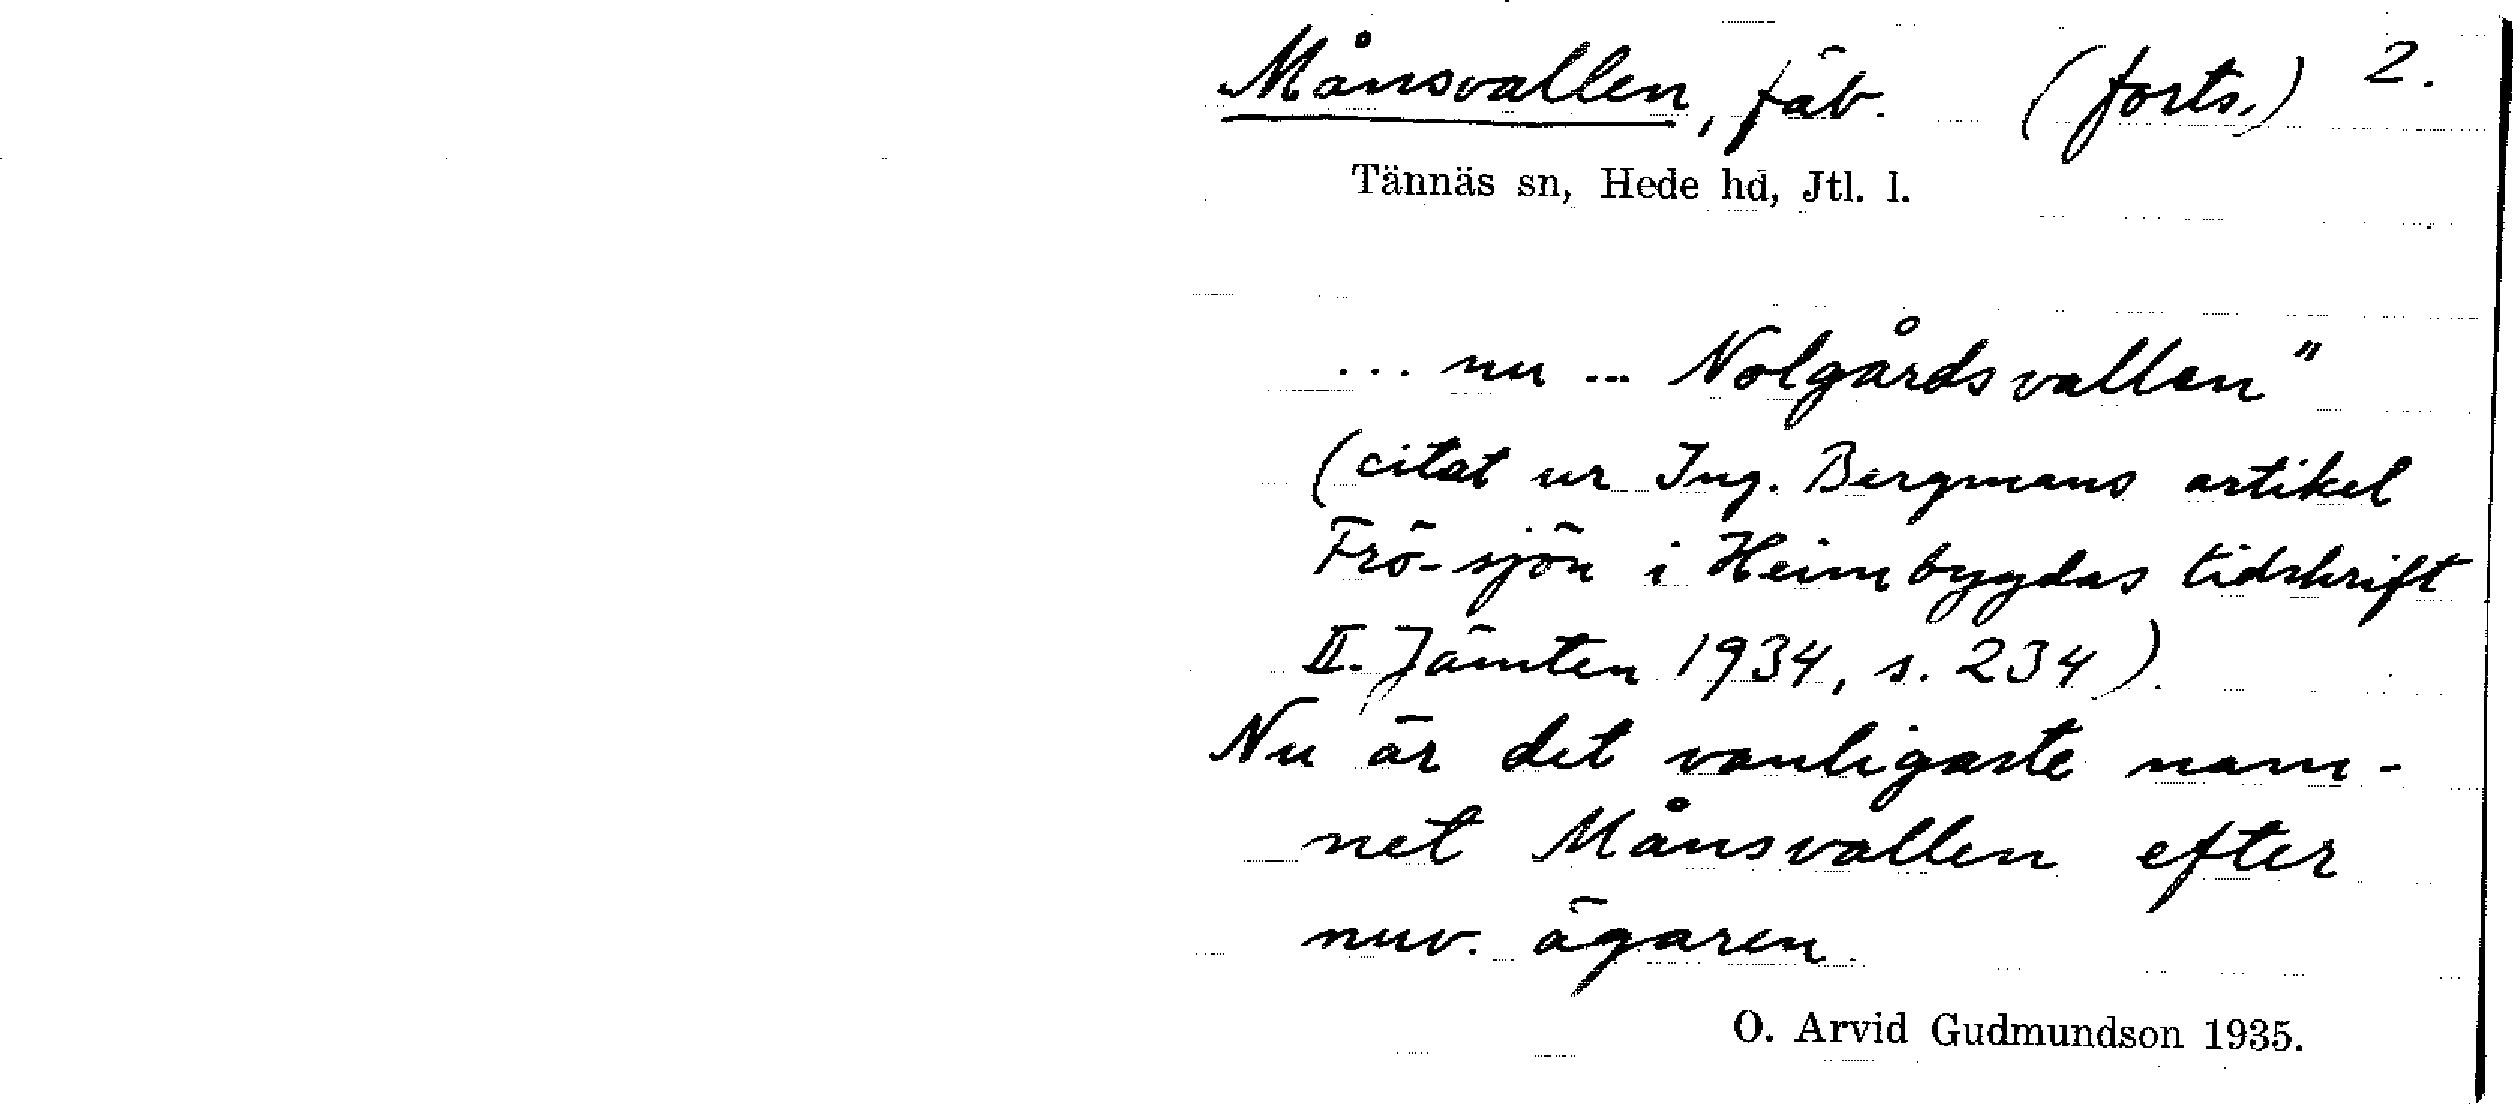 Månsvallen, fäb. (forts.) 2.
Tännäs sn, Hede hd, Jtl. l.
... nu ... Nolgårdsvallen"
(citat ur Ing. Bergmans artikel
Frö-sjön i Heimbygdas tidskrift
II. Jämten 1934, s. 234).
Nu är det vanligaste nam-
net Månsvallen efter
nuv. ägaren.
O. Arvid Gudmundson 1935.